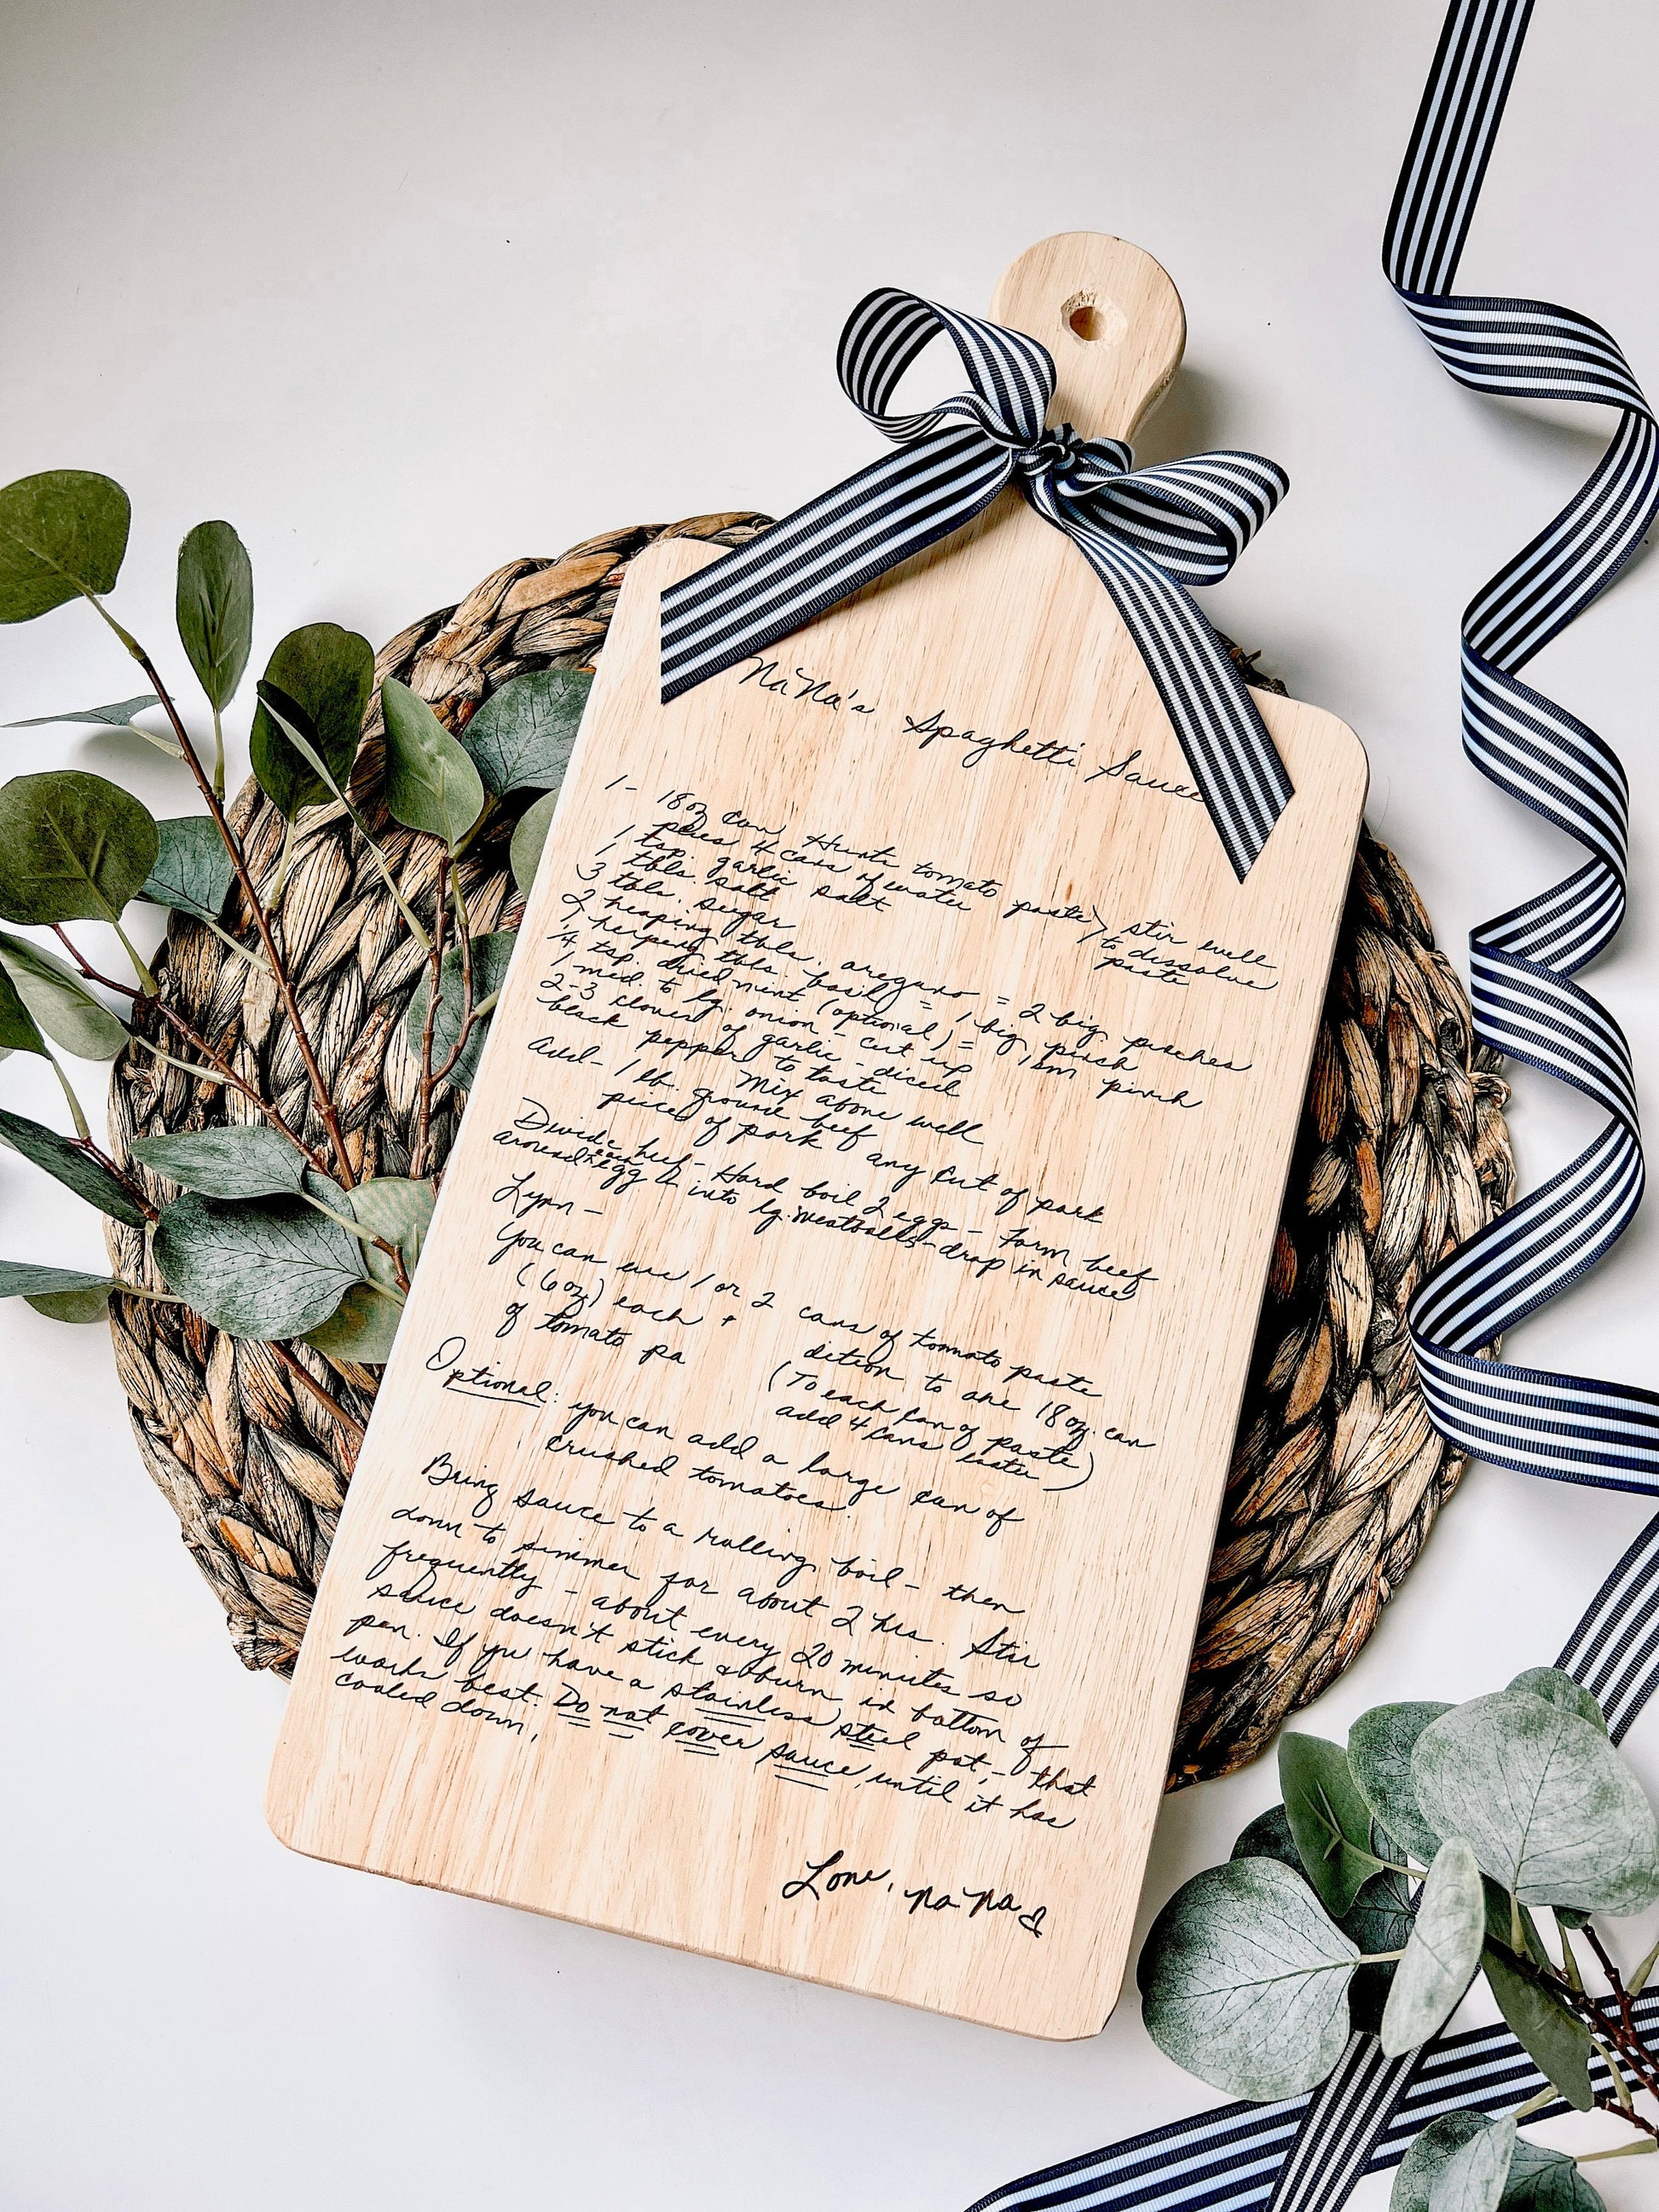 NaNa's Spaghetti Sauce
1 - 18oz can Hunts tomato paste } stir well
plus 4 cans of water to dissolve
1 tsp. garlic salt paste
1 tbls. salt
3 tbls. sugar
2 heaping tbls. oregano = 2 big pinches
1 heaping tbls. basil = 1 big pinch
1/4 tsp. dried mint (optional) = 1 sm pinch
1 med. to lg. onion - cut up
2-3 cloves of garlic - diced
black pepper to taste
Mix above well
Add - 1 lb. ground beef
piece of pork any cut of pork
Divide beef - Hard boil 2 eggs - Form beef
around each egg & into lg. meatballs - drop in sauce
Lynn -
You can use 1 or 2 cans of tomato paste
(6oz) each + dition to one 18oz. can
of tomato pa (To each can of paste
add 4 cans water)
Optional: you can add a large can of
crushed tomatoes.
Bring sauce to a rolling boil - then
down to simmer for about 2 hrs. Stir
frequently - about every 20 minutes so
sauce doesn't stick & burn in bottom of
pan. If you have a stainless steel pot, - that
works best. Do not cover sauce until it has
cooled down.
Love, NaNa